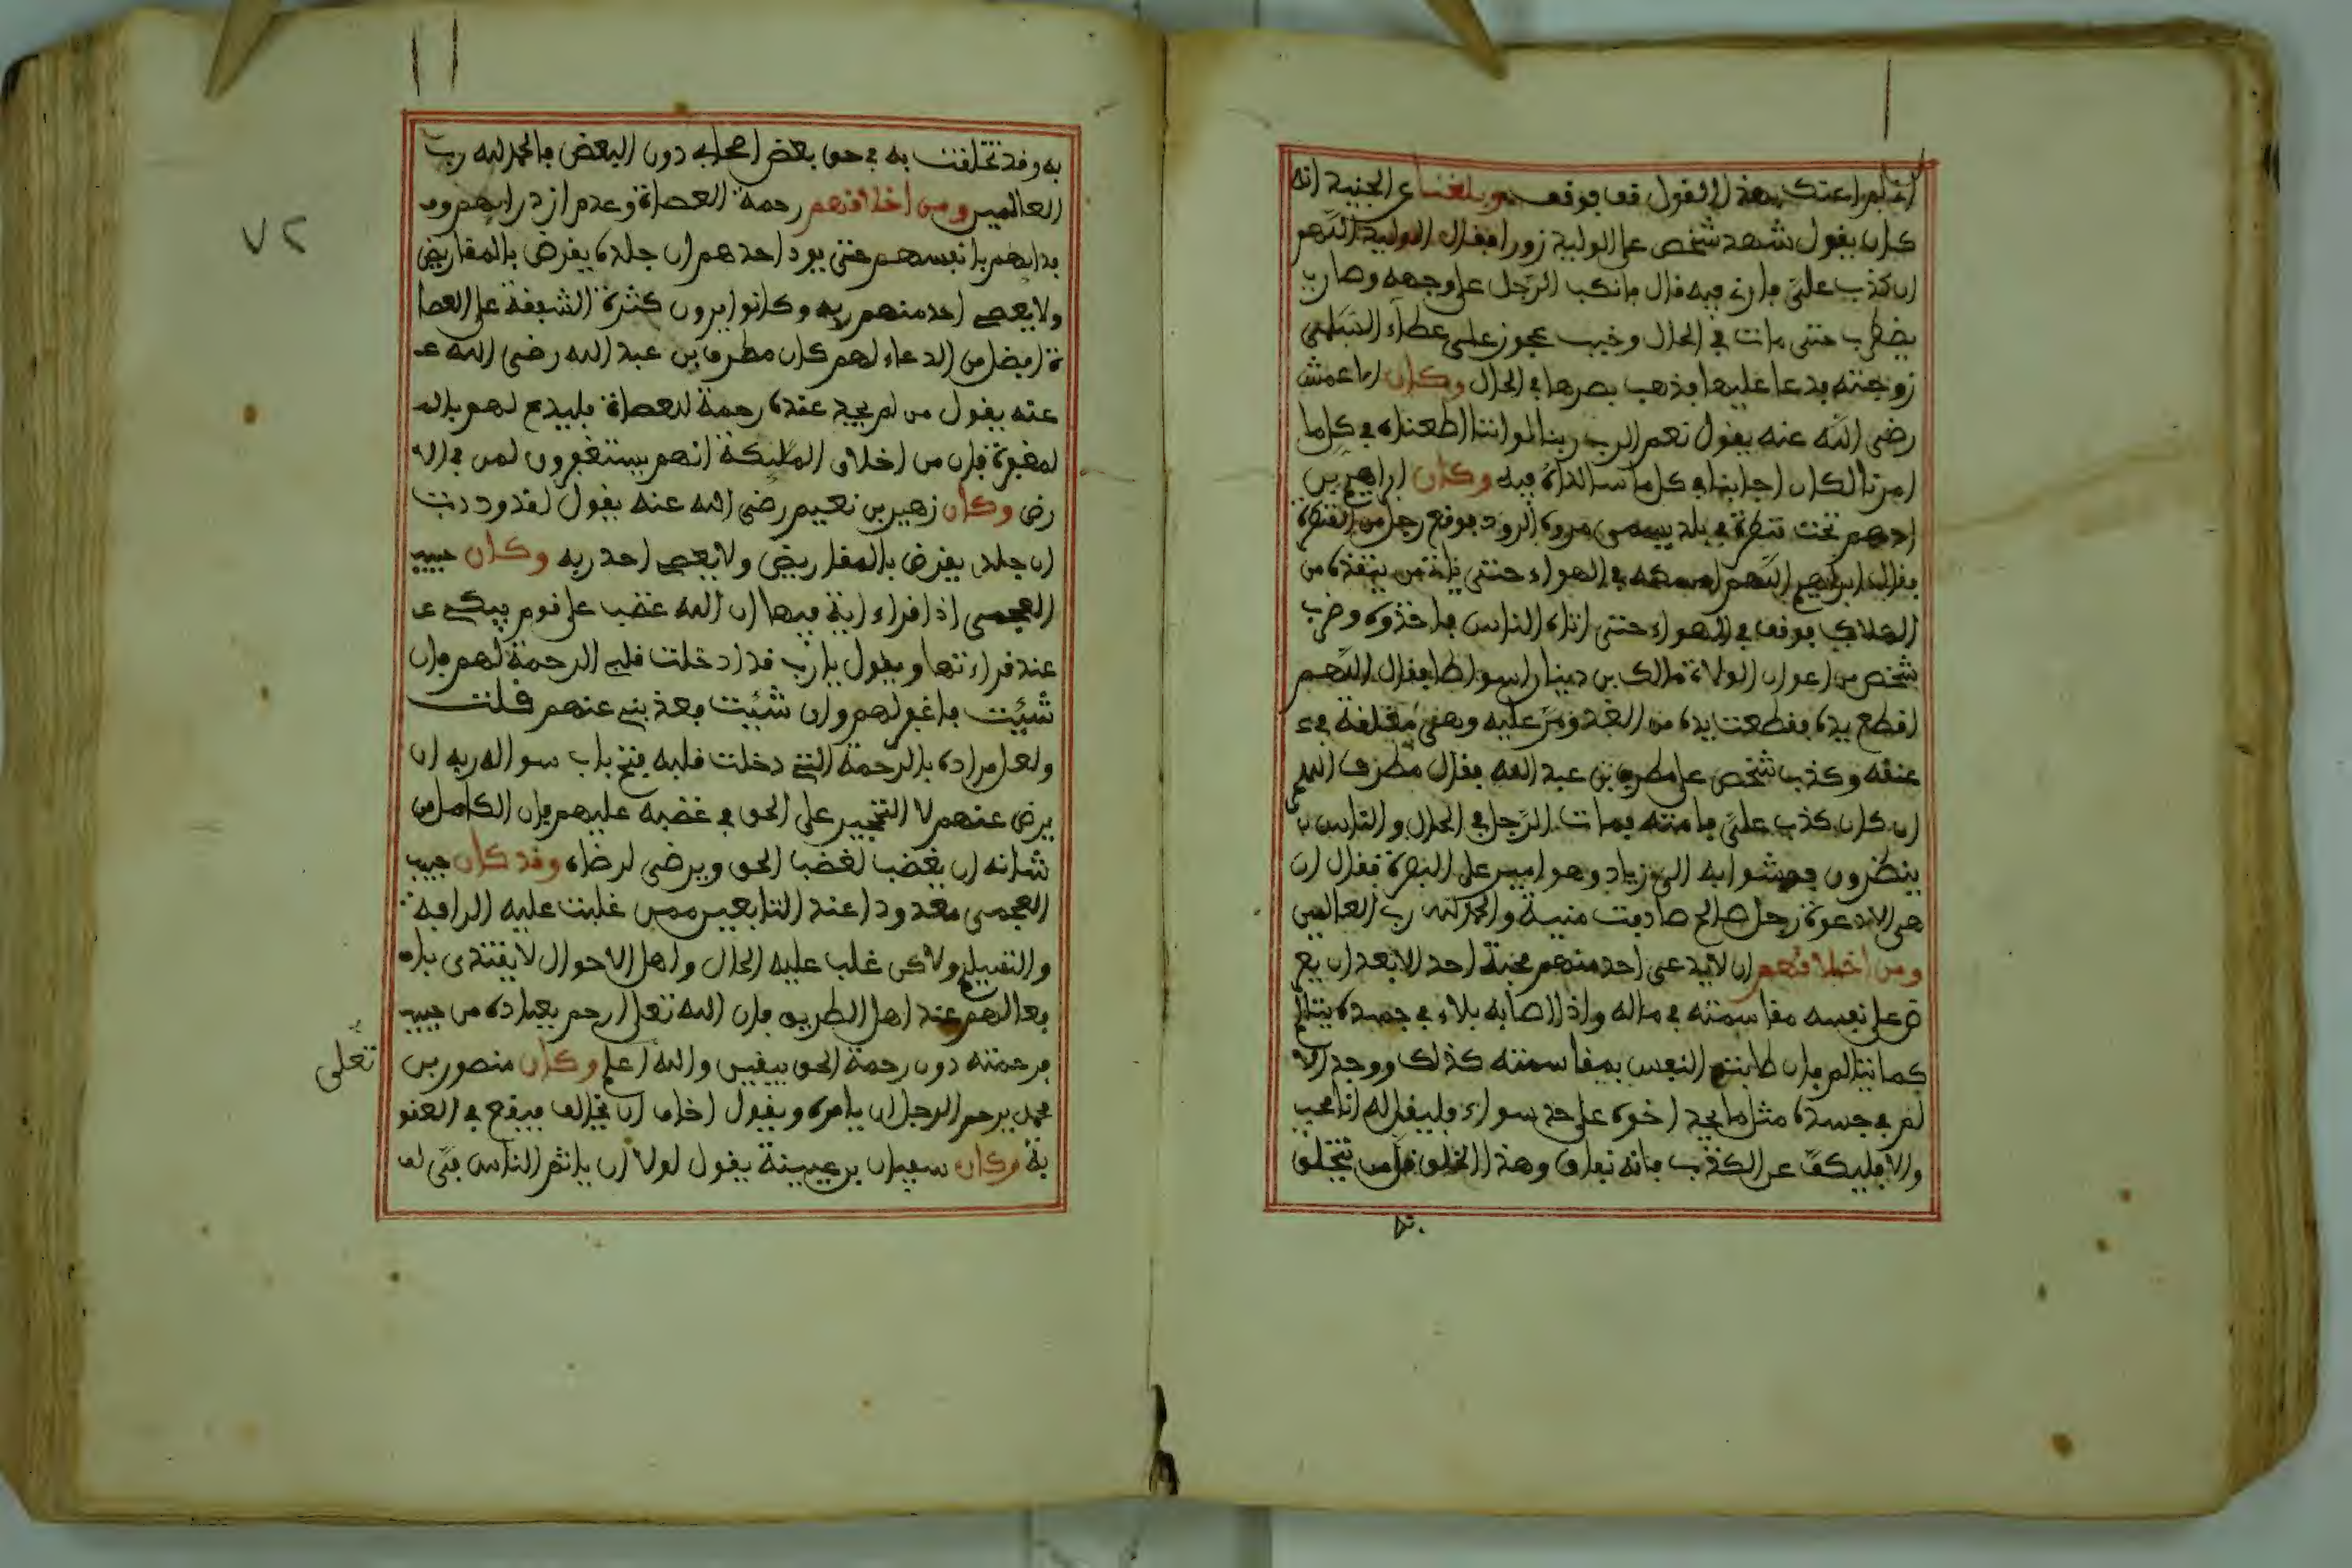 كان يقول شهد شخص على الوليد زورا فقال الوليد اللهم
ان كذب علي فارني فيه فال فانكب الرجل على وجهه وصار
يضطرب حتى مات في الحال وخبب عجوز على عطاء السلمي
زوجته فدعا عليها فذهب بصرها في الحال وكان الاعمش
رضي الله عنه يقول نعم الرب ربنا لو اننا اطعناه في كل ما
امرنا لكان اجابنا في كل ما سالناه فيه وكان ابراهيم بن
ادهم تحت قنطرة في بلد يسمى مروه الرود فوقع رجل من القنطرة
فقال ابراهيم اللهم امسكه في الهواء حتى من ينقذه من
الهلاك فوقف في الهواء حتى اتاه الناس فاخذوه وضرب
شخص من اعوان الولاة مالك بن دينار اسواطا فقال اللهم
اقطع يده فقطعت يده من الغد ومر عليه وهي معلقة في ع
عنقه وكذب شخص على مطرف بن عبد الله فقال مطرف اللهم
ان كان كذب علي فامته فمات الرجل في الحال والناس
ينظرون فمشوا به الى زياد وهو امير على البصرة فقال ان
هي الا دعوة رجل صالح صادفت منية والحمد لله رب العالمين
ومن اخلاقهم ان لا يدعي احد منهم محبة احد الا بعد ان يع
رض على نفسه مقاسمته في ماله واذا اصابه بلاء في جسده يتالم
كما يتالم فان طابت النفس بمقاسمته كذلك ووجد الا
لم في جسده مثل ما يجد اخوه على حد سواء فليقل له انا محب
والا فليكف عن الكذب فانه نفاق وهذا الخلق قل من يتخلق
به
به وقد تخلفت به في حق بعض اصحابي دون البعض فالحمد لله رب
العالمين ومن اخلاقهم رحمة العصاة وعدم ازدرايهم وف
دايهم بانفسهم حتى يود احدهم ان جلده يقرض بالمقاريض
ولا يعصي احد منهم ربه وكانوا يرون كثرة الشفقة على العصا
ة افضل من الدعاء لهم كان مطرف بن عبد الله رضي الله ع
عنه يقول من لم يجد عنده رحمة للعصاة فليدع لهم بال
لمغفرة فان من اخلاق المليكة انهم يستغفرون لمن في الا
رض وكان زهير بن نعيم رضي الله عنه يقول لقد وددت
ان جلدي يقرض بالمقاريض ولا يعصي احد ربه وكان حبيب
العجمي اذا قراء اية فيها ان الله غضب على قوم يبكي ع
عند قراءتها ويقول يارب قد ادخلت قلبي الرحمة لهم فان
شئيت فاغفر لهم وان شئيت فعذبني عنهم قلت
ولعل مراده بالرحمة التي دخلت قلبه فتح باب سواله ربه ان
يرض عنهم لا التحجير على الحق في غضبه عليهم فان الكامل من
شانه ان يغضب لغضب الحق ويرضى لرضاه وقد كان حبيب
العجمي معدودا عند التابعين ممن غلبت عليه الرافه
والتقييد ولاكن غلب عليه الحال واهل الاحوال لا يقتدى با
فعالهم عند اهل الطريق فان الله تعلى ارحم بعباده من حبيب
فرحمته دون رحمة الحق بيقين والله اعلم وكان منصور بن
تعلى
محمد يرحم الرجل ان يامره ويقول اخاف ان يخالف فيقع في العقو
بة وكان سفيان بن عيينة يقول لولا ان ياثم الناس في لق
٧٢